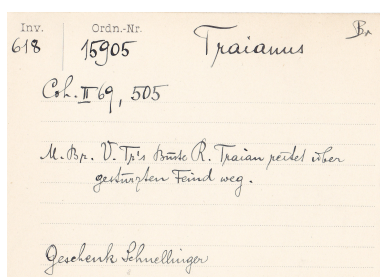 Inv. Ordn.-Nr. Br
618 15905 Traianus
Coh. II 69, 505
M. Br. V. Tr's Büste R. Traian reitet über
gestürzten Feind weg.
Geschenk Schnellinger